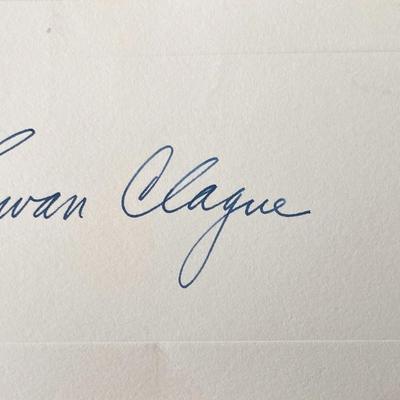 wan Clague